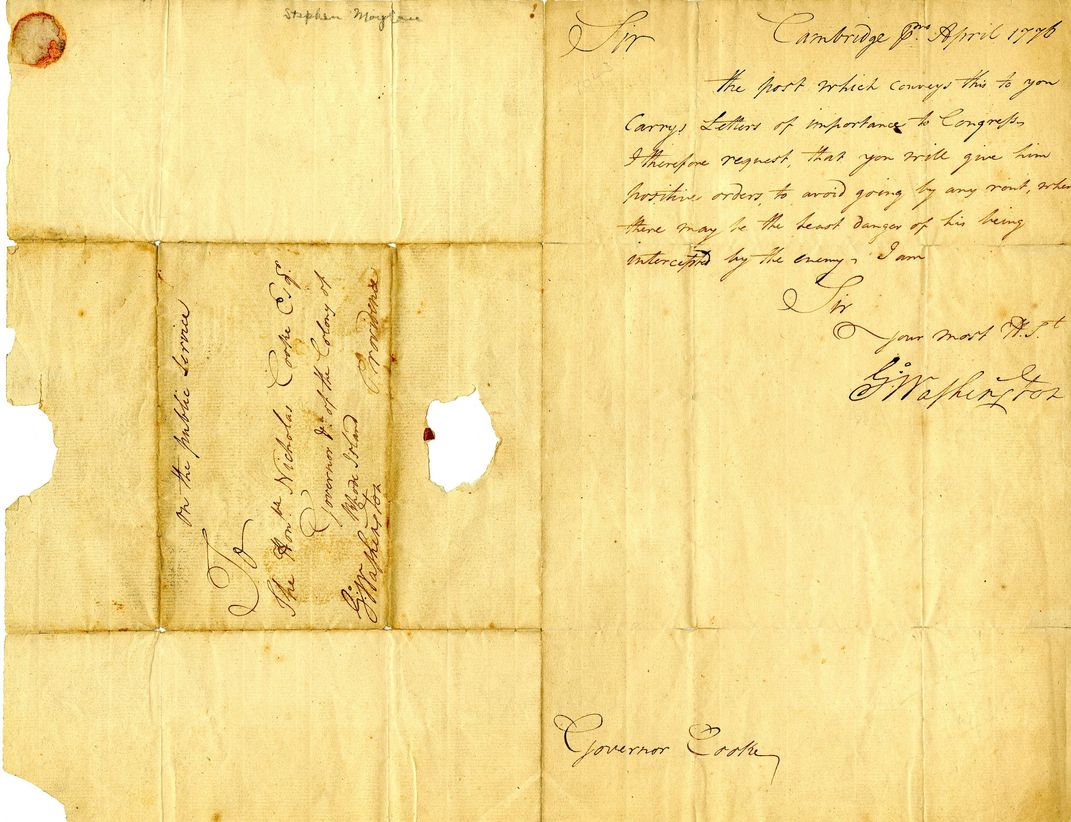 Stephen
on the public service
To
The Honble Nicholas Cooke Esqr
Governor &ca of the Colony of
Rhode Island
Providence
Go: Washington
Sir
Cambridge April 1776
the post which conveys this to you
Carrys Letters of importance to Congress,
I therefore request, that you will give him
positive orders, to avoid going by any rout, wher
there may be the least danger of his being
intercepted by the enemy, I am
Sir
your most H. St
Go: Washington
Governor Cooke